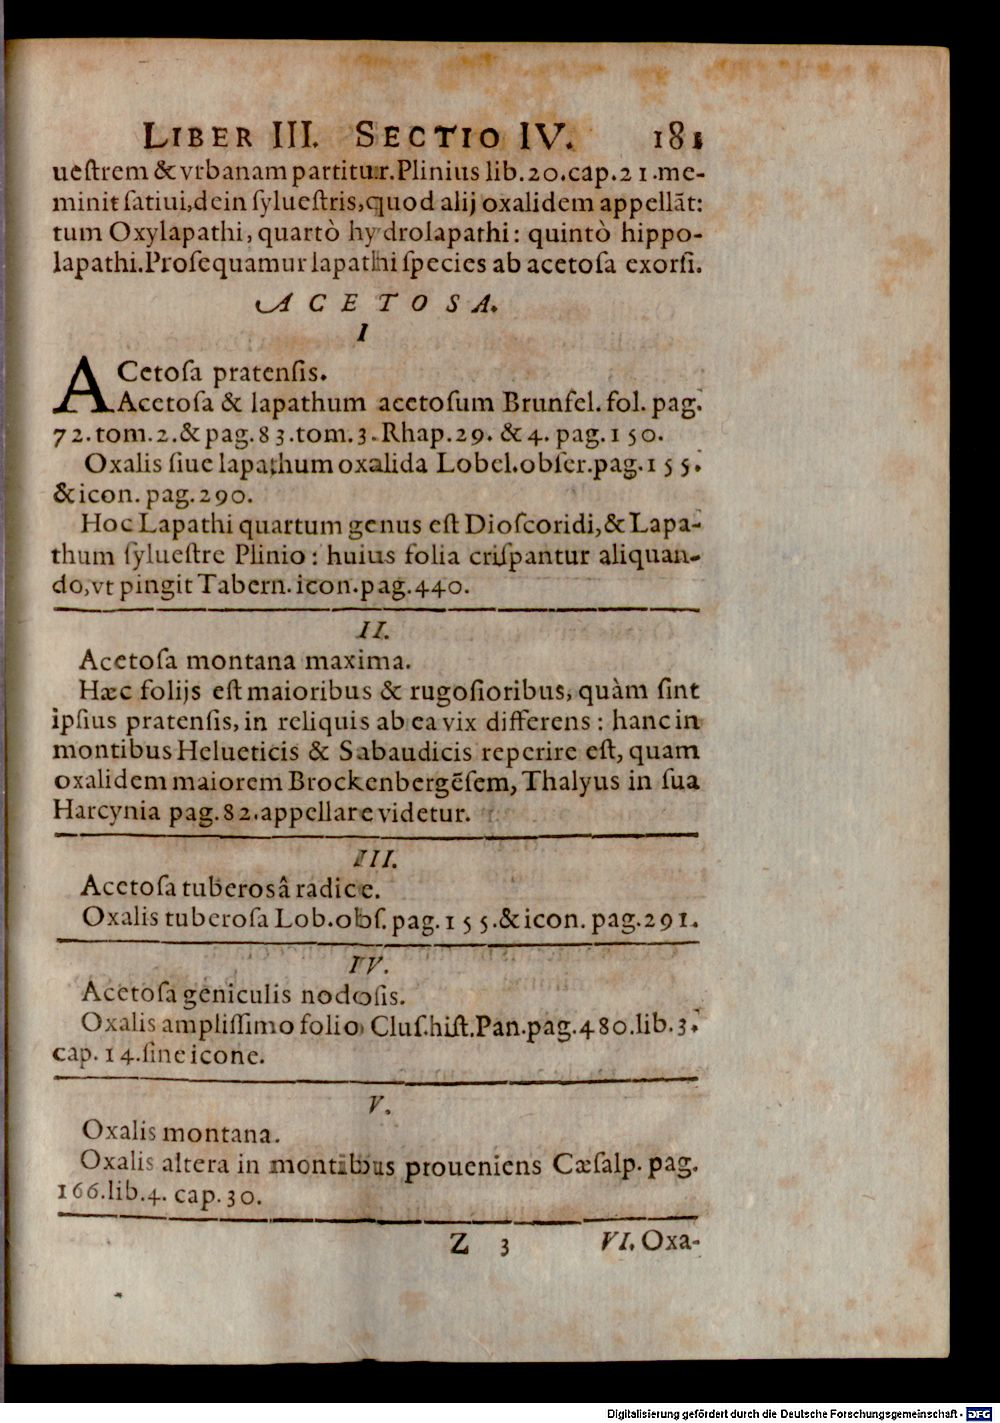 LIBER III. SECTIO IV. 181
ueſtrem & vrbanam partitur. Plinius lib. 20. cap. 21. me-
minit ſatiui, dein ſylueſtris, quod alij oxalidem appellãt:
tum Oxylapathi, quartò hydrolapathi: quintò hippo-
lapathi. Proſequamur lapathi ſpecies ab acetoſa exorſi.
ACETOSA.
I
ACetoſa pratenſis.
Acetoſa & lapathum acetoſum Brunfel. fol. pag.
72. tom. 2. & pag. 83. tom. 3. Rhap. 29. & 4. pag. 150.
Oxalis ſiue lapathum oxalida Lobel. obſer. pag. 155.
& icon. pag. 290.
Hoc Lapathi quartum genus eſt Dioſcoridi, & Lapa-
thum ſylueſtre Plinio: huius folia criſpantur aliquan-
do, vt pingit Tabern. icon. pag. 440.
II.
Acetoſa montana maxima.
Hæc folijs eſt maioribus & rugoſioribus, quàm ſint
ipſius pratenſis, in reliquis ab ea vix differens: hanc in
montibus Helueticis & Sabaudicis reperire eſt, quam
oxalidem maiorem Brockenbergẽſem, Thalyus in ſua
Harcynia pag. 82. appellare videtur.
III.
Acetoſa tuberosâ radice.
Oxalis tuberoſa Lob. obſ. pag. 155. & icon. pag. 291.
IV.
Acetoſa geniculis nodoſis.
Oxalis ampliſſimo folio Cluſ. hiſt. Pan. pag. 480. lib. 3.
cap. 14. ſine icone.
V.
Oxalis montana.
Oxalis altera in montibus proueniens Cæſalp. pag.
166. lib. 4. cap. 30.
Z 3 VI. Oxa-
Digitalisierung gefördert durch die Deutsche Forschungsgemeinschaft - DFG